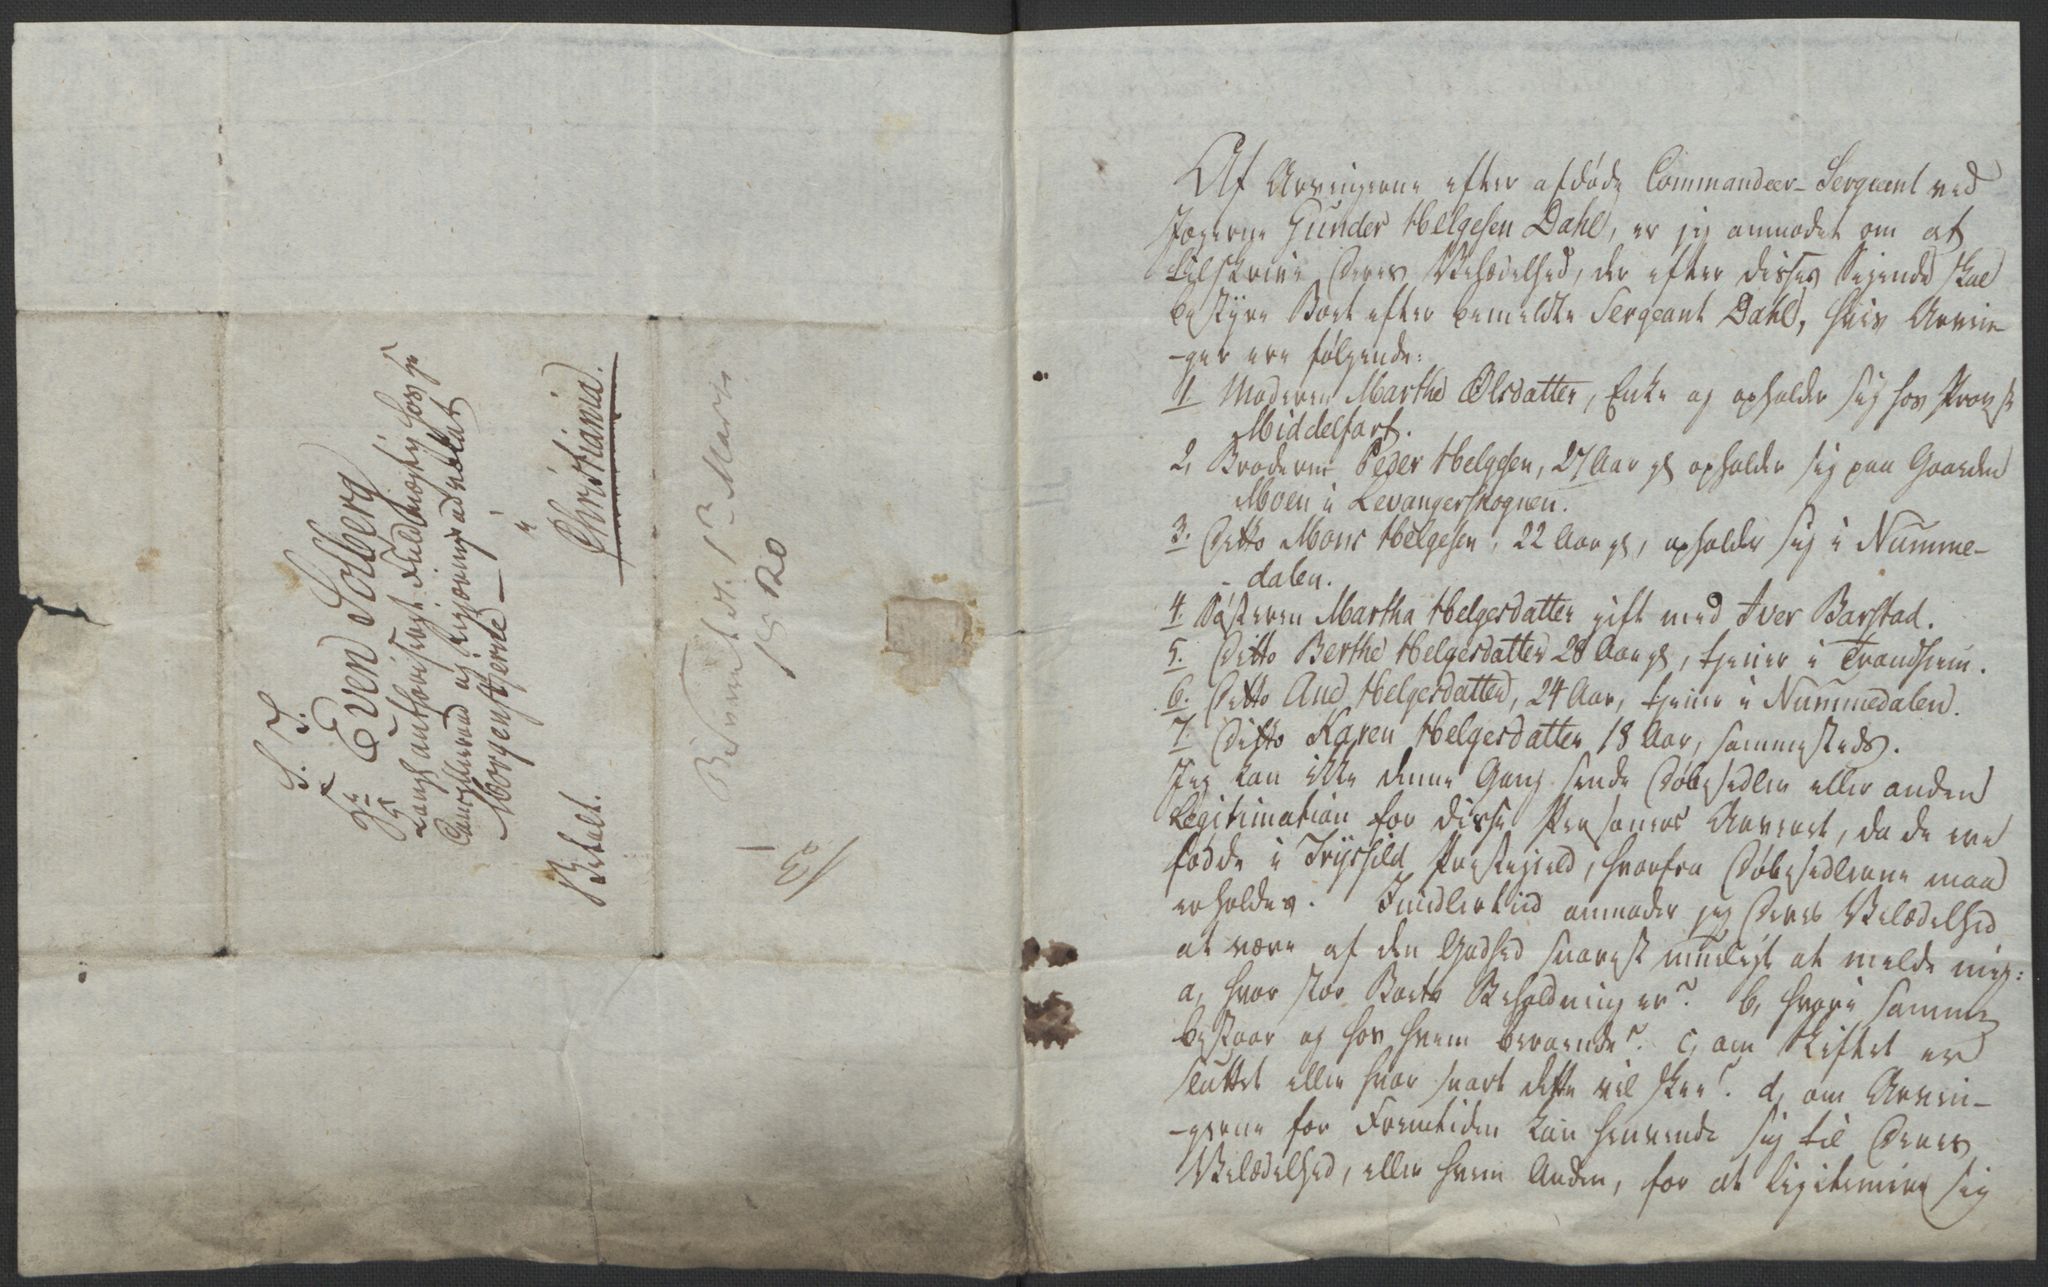 S. T.
Hr Even Solberg
Canselleraad og Regjeringsadvokat
Morgenstjerne
i
Christiania.
Betalt.
Besvaret d. 1ste Marts
1820
Af Arvingerne efter afdøde Commandeer-Sergeant ved
Jægerne Gunder Helgesen Dahl, er jeg anmodet om at
tilskrive Deres Velædelhed, der efter disses Sigende skal
bestyre Boet efter bemeldte Sergeant Dahl, hvis Arvin-
-ger ere følgende:
1. Moderen Marthe Olsdatter, Enke og opholder sig hos Provst
Middelfart.
2, Broderen Peder Helgesen, 27 Aar gl opholder sig paa Gaarden
Moen i Levangerskognen.
3. Ditto Mons Helgesen, 22 Aar gl, opholder sig i Numme-
- dalen.
4. Søsteren Martha Helgesdatter gift med Iver Barstad.
5. Ditto Berthe Helgesdatter 28 Aar gl, tjener i Trondhiem.
6. Ditto Ane Helgesdatter, 24 Aar, tjener i Nummedalen.
7. Ditto Karen Helgesdatter 18 Aar, sammesteds.
Jeg kan ikke denne Gang sende Døbesedler eller anden
Legitimation for disse Personers Arveret, da de ere
fødde i Trysild Præstegield, hvorfra Døbesedlerne maa
erholdes. Imidlertiid anmoder jeg Deres Velædelhed
at være af den Godhed snarest mueligt at melde mig:
a, hvor stor Boets Beholdning er? b, hvori samme
bestaaer og hos hvem beroende? c, om Skiftet er
sluttet eller hvor snart dette vil skee? d, om Arvin-
-gerne for Fremtiden kan henvende sig til Deres
Velædelhed, eller hvem Anden, for at legitimere sig